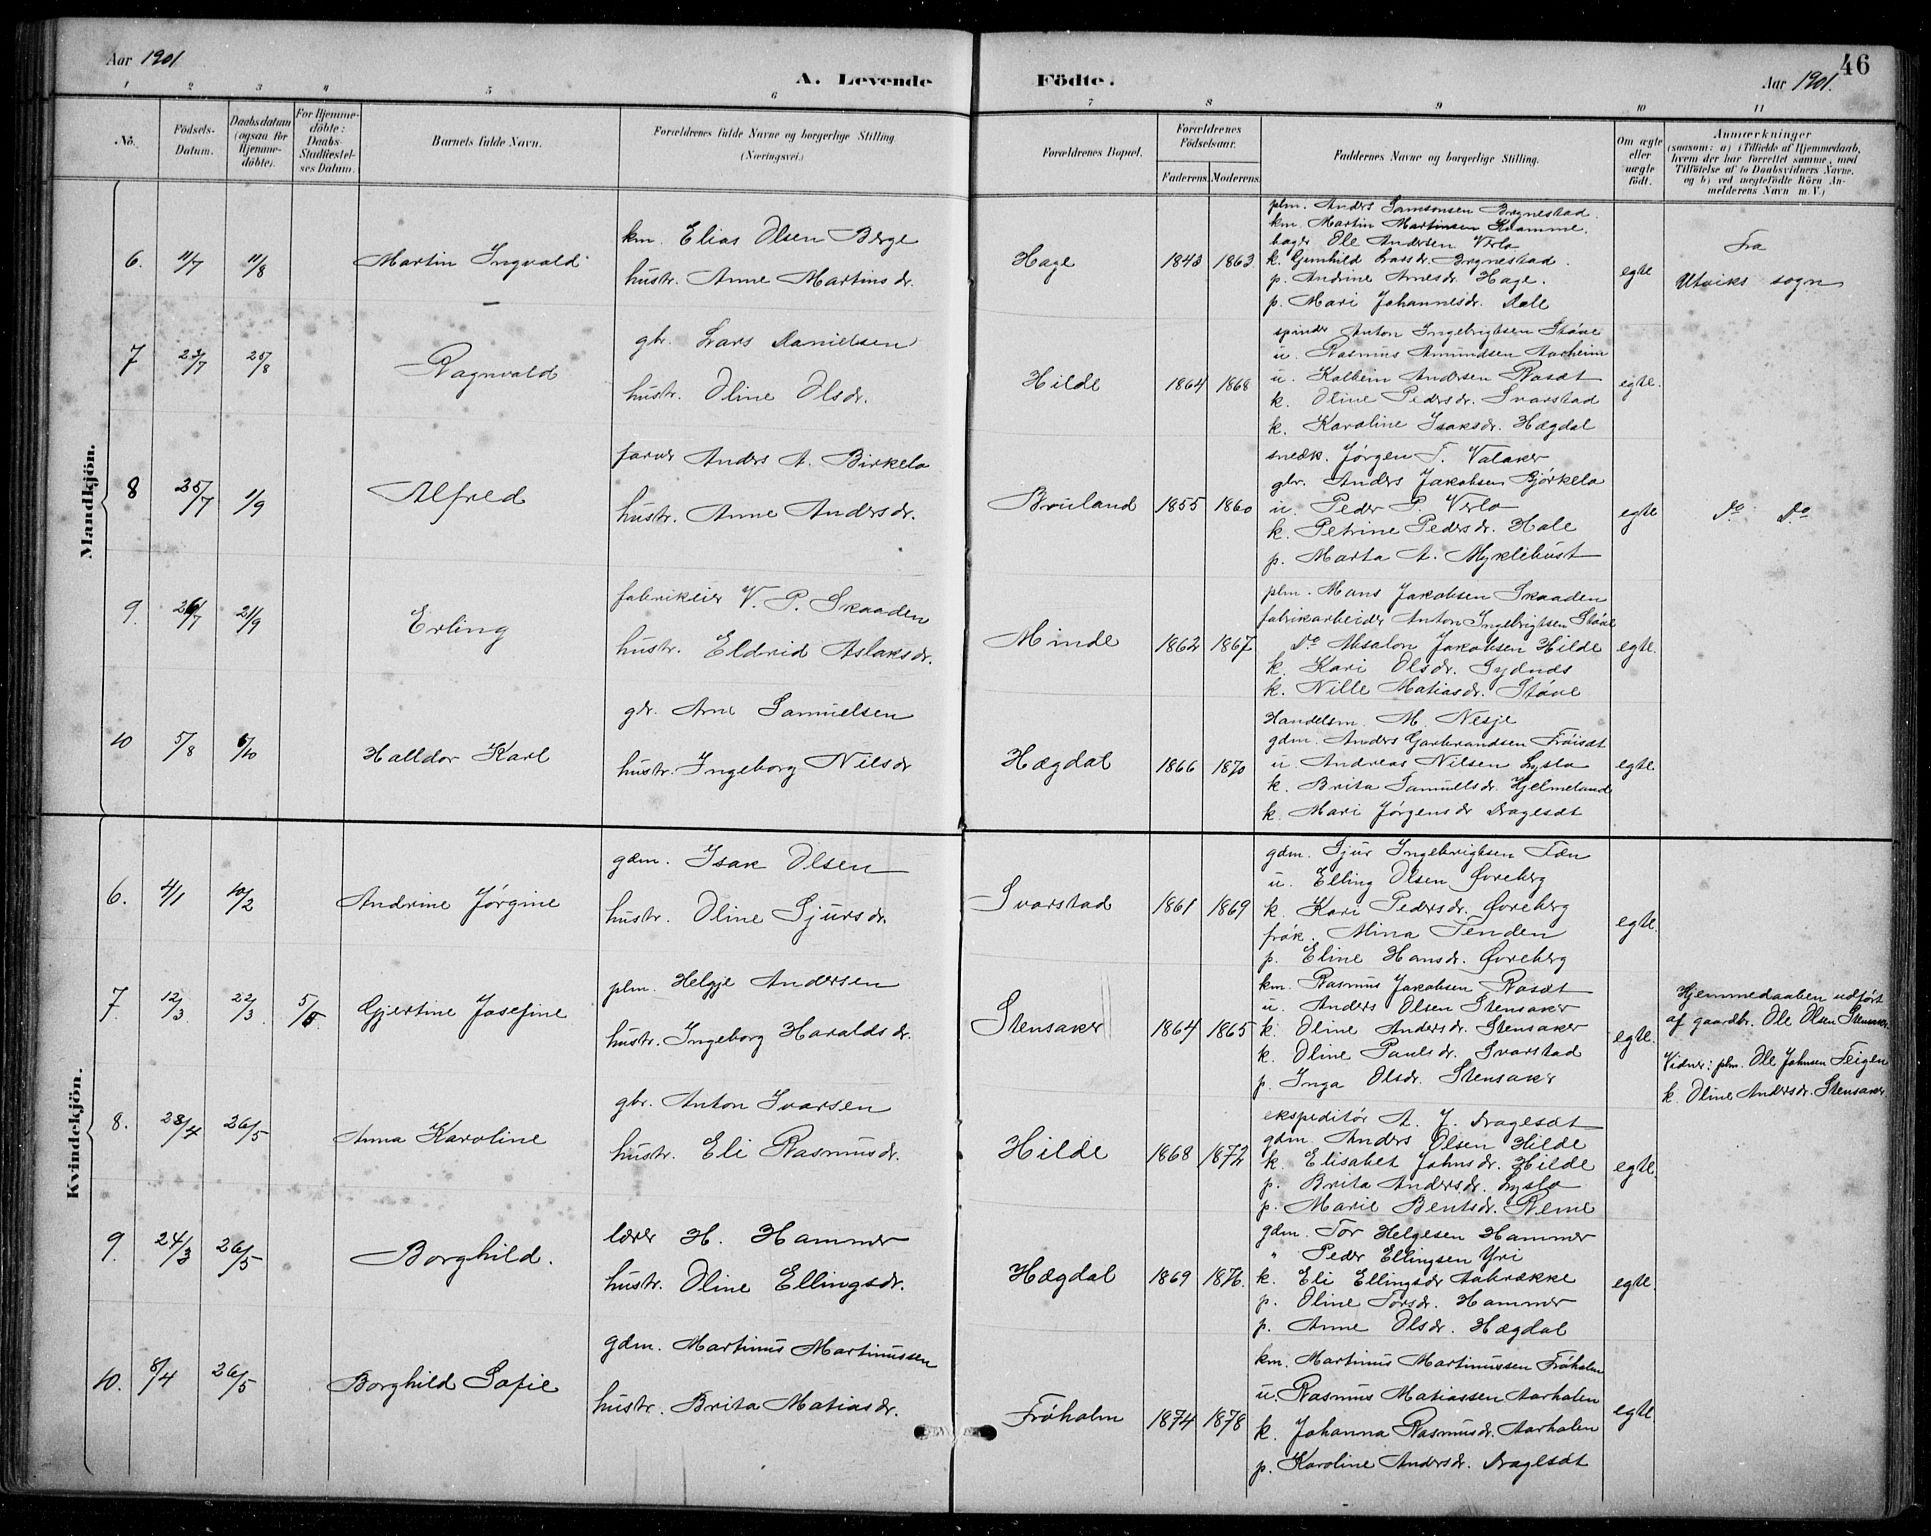 Aar 1901
A. Levende
Födte.
Aar 1901.
46
1 2 3 4 5 6 7 8 9 10 11
No.
Födsels-Datum.
Daabsdatum (ogsaa for Hjemme-döbte).
For Hjemme-döbte: Daabs-Stadfæstel-ses Datum.
Barnets fulde Navn.
Forældrenes fulde Navne og borgerlige Stilling (Næringsvei.)
Forældrenes Bopæl.
Forældrenes Födselsaar.
Faderens. Moderens.
Faddernes Navne og borgerlige Stilling.
Om ægte eller uægte födt.
Anmærkninger
(saasom: a) i Tilfælde af Hjemmedaab,
hvem der har forrettet samme, med
Tilföielse af to Daabsvidners Navne,
og b) ved uægtefödte Börn An-
melderens Navn m. V.)
Mandkjön.
6. 11/7 11/8 Martin Ingvald
km. Elias Olsen Berge
hustr. Anne Martinsdr.
Hage 1843 1863
plm. Anders Samsonsen Brynestad.
km. Martin Martinsen Kvamme.
bager Ole Andersen Verlo
k. Gunhild Larsdr. Brynestad.
p. Andrine Arnesdr. Hage.
p. Mari Johannesdr. Aale
egte
Fra
Utviks sogn
7 23/7 25/8 Ragnvald
gbr. Lars Danielsen
hustr. Oline Olsdr.
Hilde 1864 1868
spinder Anton Ingebrigtsen Støve
u. Rasmus Amundsen Aarheim
u. Kolbein Andersen Rosæt
k. Oline Pedersdr. Svarstad
k. Karoline Isaksdr. Hægdal
egte.
8 25/7 1/9 Alfred
farver Anders A. Birkelo
hustr. Anne Andersdr.
Bruland 1855 1860
snedk. Jørgen T. Valaker
gbr. Anders Jakobsen Bjørkelo
u. Peder P. Verlo
k. Petrine Pedersdr. Hole
p. Marta A. Myklebust
egte
Do Do
9. 26/7 21/9 Erling
fabrikeier V. P. Skaaden
hustr. Eldrid Aslaksdr.
Minde 1862 1867
plm. Mons Jakobsen Skaaden
fabrikarbeider Anton Ingebrigtsen Støve
Do Absalon Jakobsen Hilde
k. Kari Olsdr. Sydnes
k. Nille Matiasdr. Støve
egte.
10 5/8 6/10 Halldor Karl
gbr. Arne Samuelsen
hustr. Ingeborg Nilsdr
Hægdal 1866 1870
Handelsm. M. Nesje
gdm. Anders Garbrandsen Frøisæt
u. Andreas Nilsen Lyslo
k. Brita Samuelsdr. Hjelmeland
k. Mari Jørgensdr Dragesæt
egte
Kvindekjön.
6. 4/1 10/2 Andrine Jørgine
gdm. Isak Olsen
hustr. Oline Sjursdr.
Svarstad 1861 1869
gdm. Sjur Ingebrigtsen Tæn
u. Elling Olsen Øvreberg
k. Kari Pedersdr. Øvreberg
frøk. Mina Tenden
p. Eline Hansdr. Øvreberg
egte.
7. 12/3 22/3 5/5 Gjertine Josefine
plm. Helgje Andersen
hustr. Ingeborg Haraldsdr.
Stensaker 1864 1865
km. Rasmus Jakobsen Rosæt
u. Anders Olsen Stensaker
k. Oline Andersdr. Stensaker
k. Oline Paulsdr. Svarstad
p. Inga Olsdr. Stensaker
egte.
Hjemmedaaben udført
af gaardbr. Ole Olsen Stensaker
Vidner: plm. Ole Johnsen Feigen
k. Oline Andersdr. Stensaker
8. 28/4 26/5 Anna Karoline
gbr. Anton Ivarsen
hustr. Eli Rasmusdr.
Hilde 1868 1872
ekspeditør A. J. Dragesæt
gdm. Anders Olsen Hilde
k. Elisabet Johnsdr. Hilde
p. Brita Andersdr. Lyslo
p. Marie Bentsdr. Reme
egte.
9. 24/3 26/5 Borghild.
lærer H. Hammer
hustr. Oline Ellingsdr.
Hægdal 1869 1876.
gdm. Tor Helgesen Hammer
" Peder Ellingsen Yri
k. Eli Ellingsdr Aabrække
p. Oline Torsdr. Hammer
p. Anne Olsdr. Hægdal
egte.
10. 8/4 26/5 Borghild Sofie
gdm. Martinus Martinussen
hustr. Brita Matiasdr.
Frøholm 1874 1878
km. Martinus Martinussen Frøholm
u. Rasmus Matiassen Aarholen
k. Johanna Rasmusdr. Aarholen
p. Karoline Andersdr. Dragesæt
egte